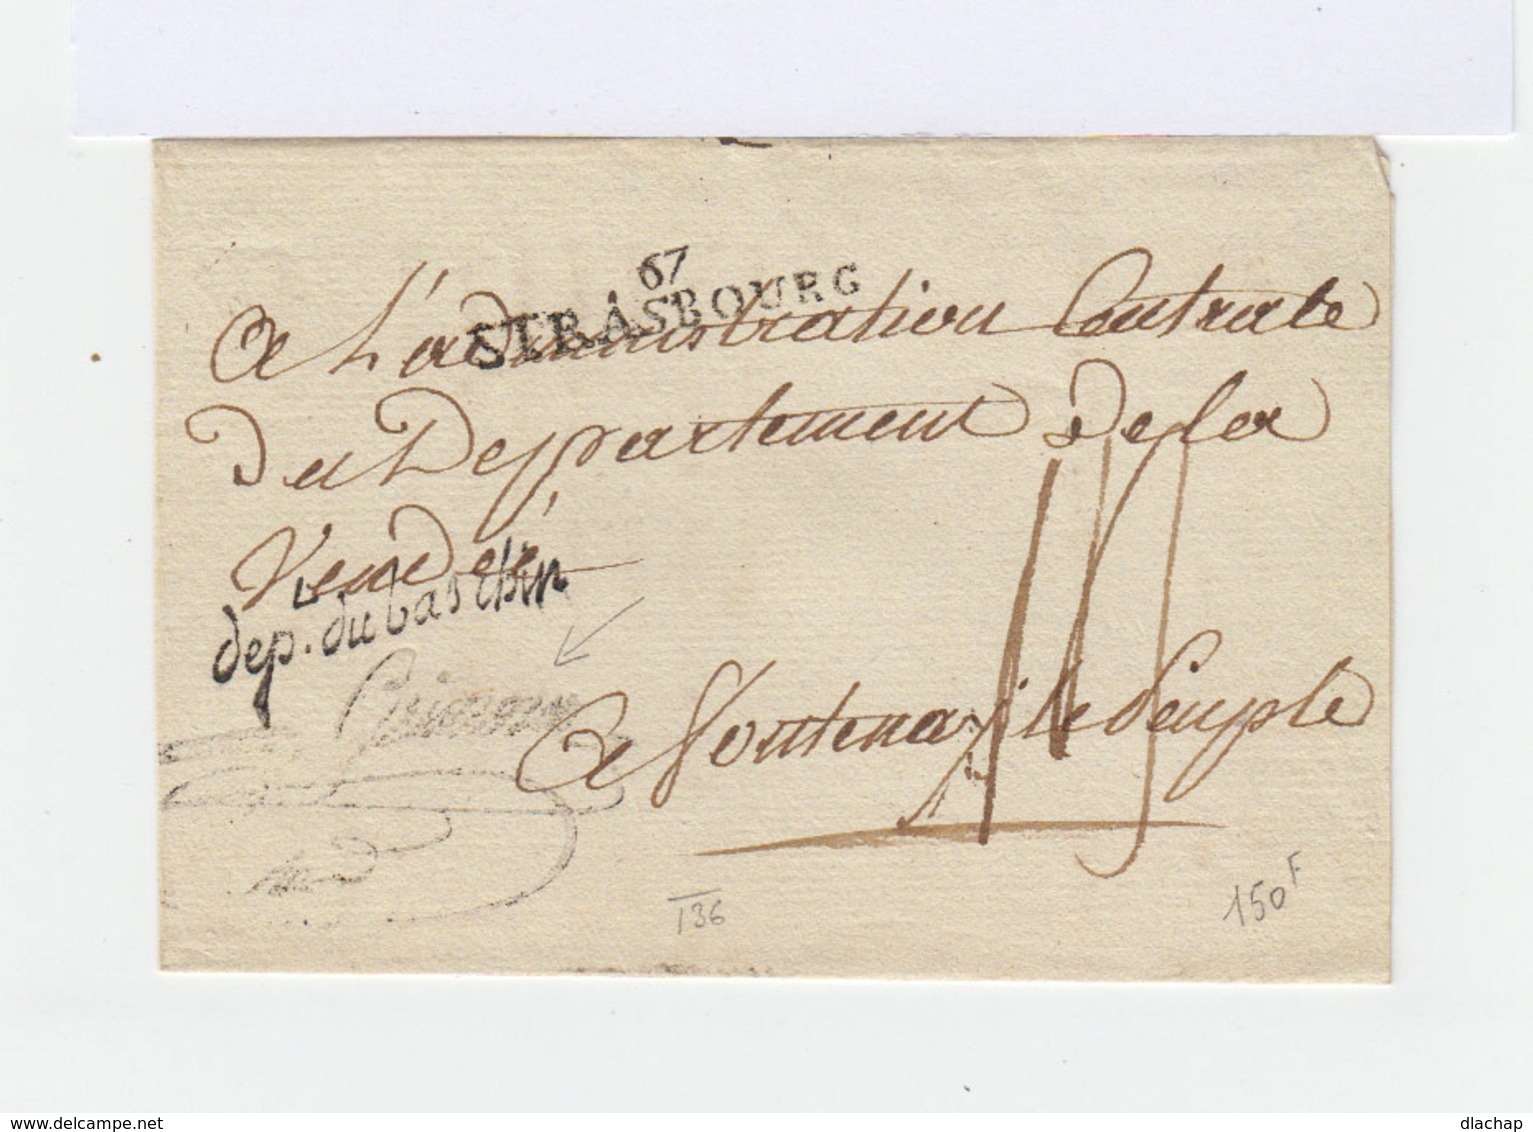 67
STRASBOURG
A L'administration Centrale
Du Departement De la
Vendeé
dep. du bas rhin
A fontenay le Peuple
136
150 F
www.delcampe.net
dlachap